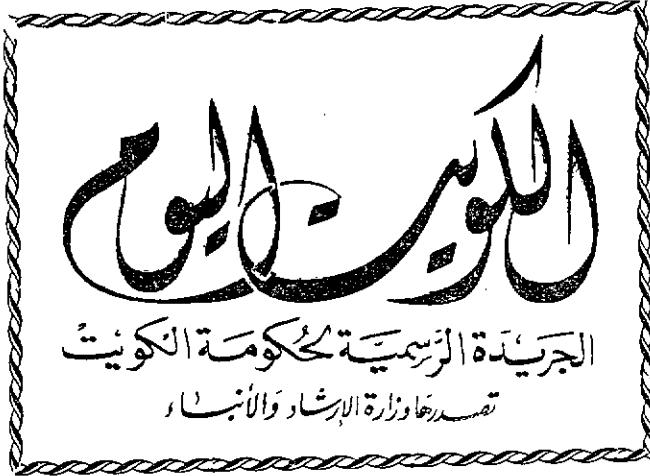 الكويت اليوم
الجَريْدة الرّسِميَّة لحُكومَة الكويتْ
تصدرها وزارة الإرشاد وَالأنبـاء